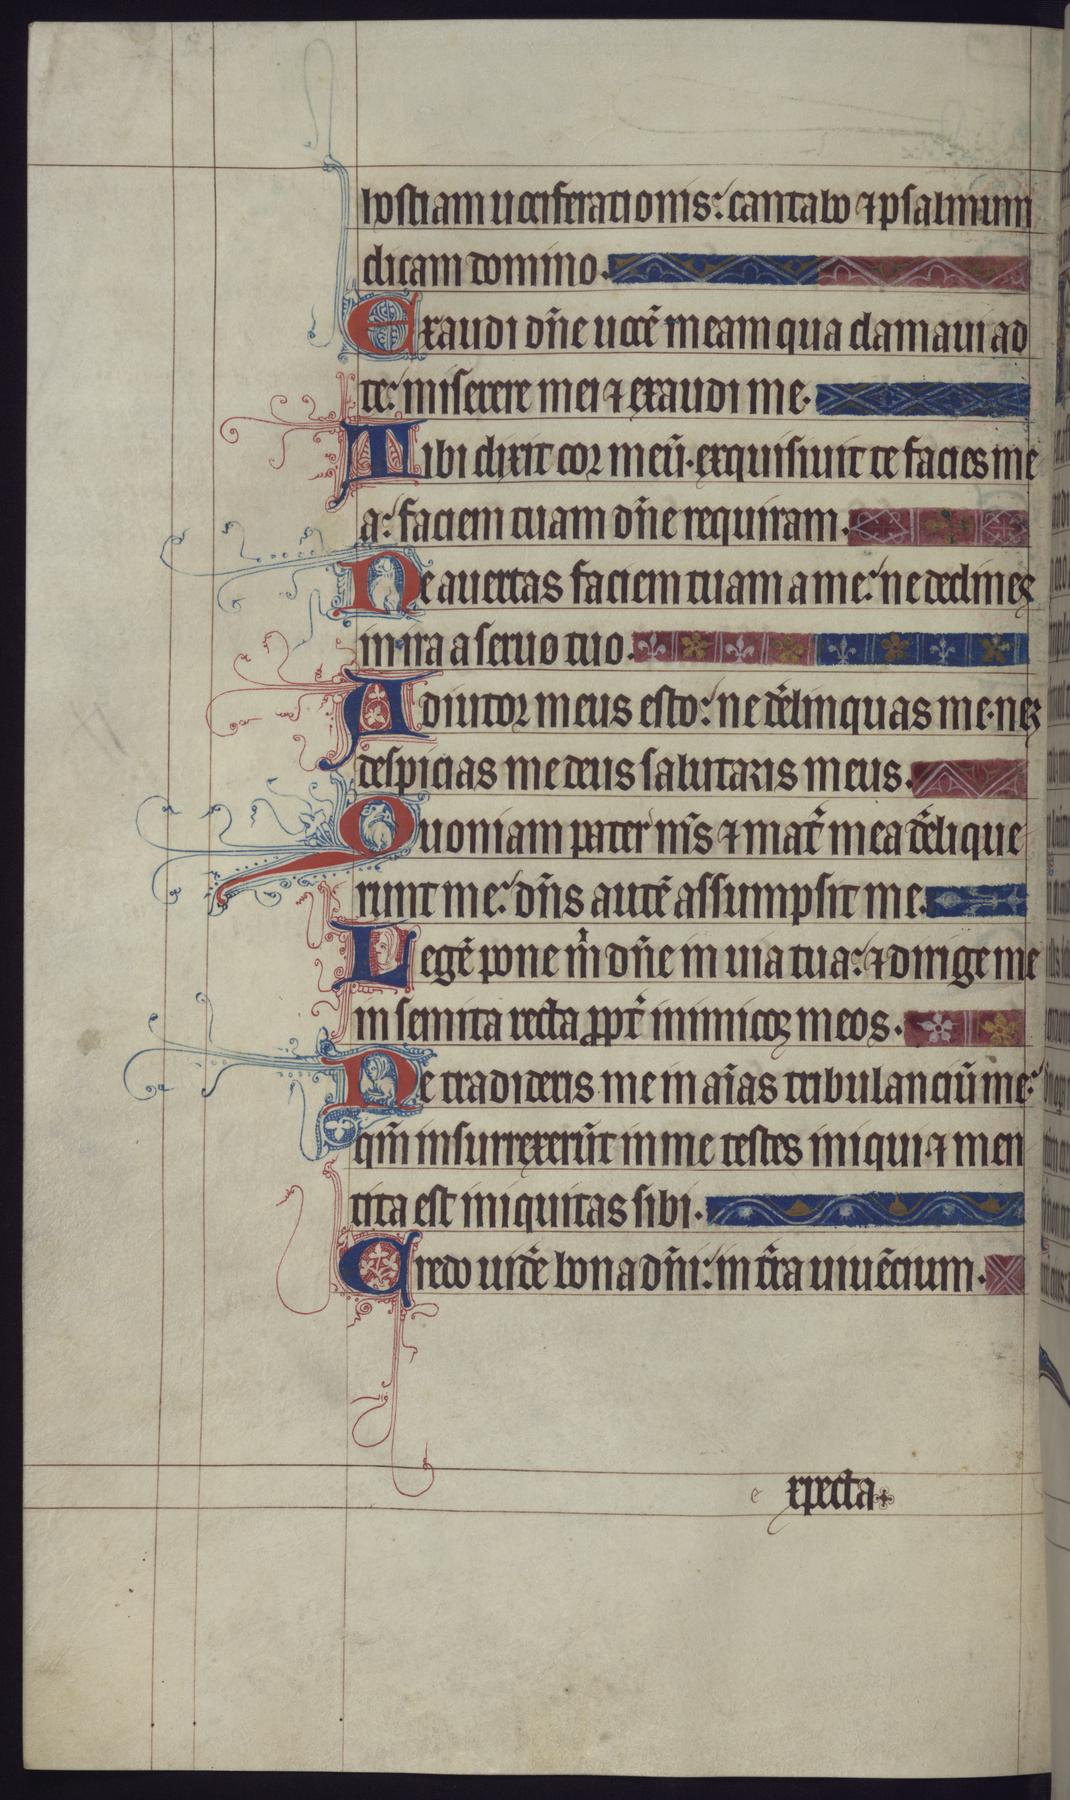 hostiam uociferationis: cantabo ⁊ psalmum
dicam domino.
Exaudi dn̄e uocē meam qua clamaui ad
te: miserere mei ⁊ exaudi me.
Tibi dixit cor meū. exquisiuit te facies me
a: faciem tuam dn̄e requiram.
Ne auertas faciem tuam a me: ne declines
in ira a seruo tuo.
Adiutor meus esto: ne dēlinquas me. neꝫ
despicias me deus salutaris meus.
Quoniam pater m̄s ⁊ mat̄ mea dēlique
runt me: dn̄s autē assumpsit me.
Legē pone m̄ dn̄e in uia tua: ⁊ dirige me
in semita recta ꝓpt̄ inimicoꝝ meos.
Ne tradideris me in aīas tribulanciū me:
qm̄ insurrexerūt in me testes iniqui ⁊ men
tita est iniquitas sibi.
Credo uidē bona dn̄i: in t̄ra uiuēcium.
e xpecta